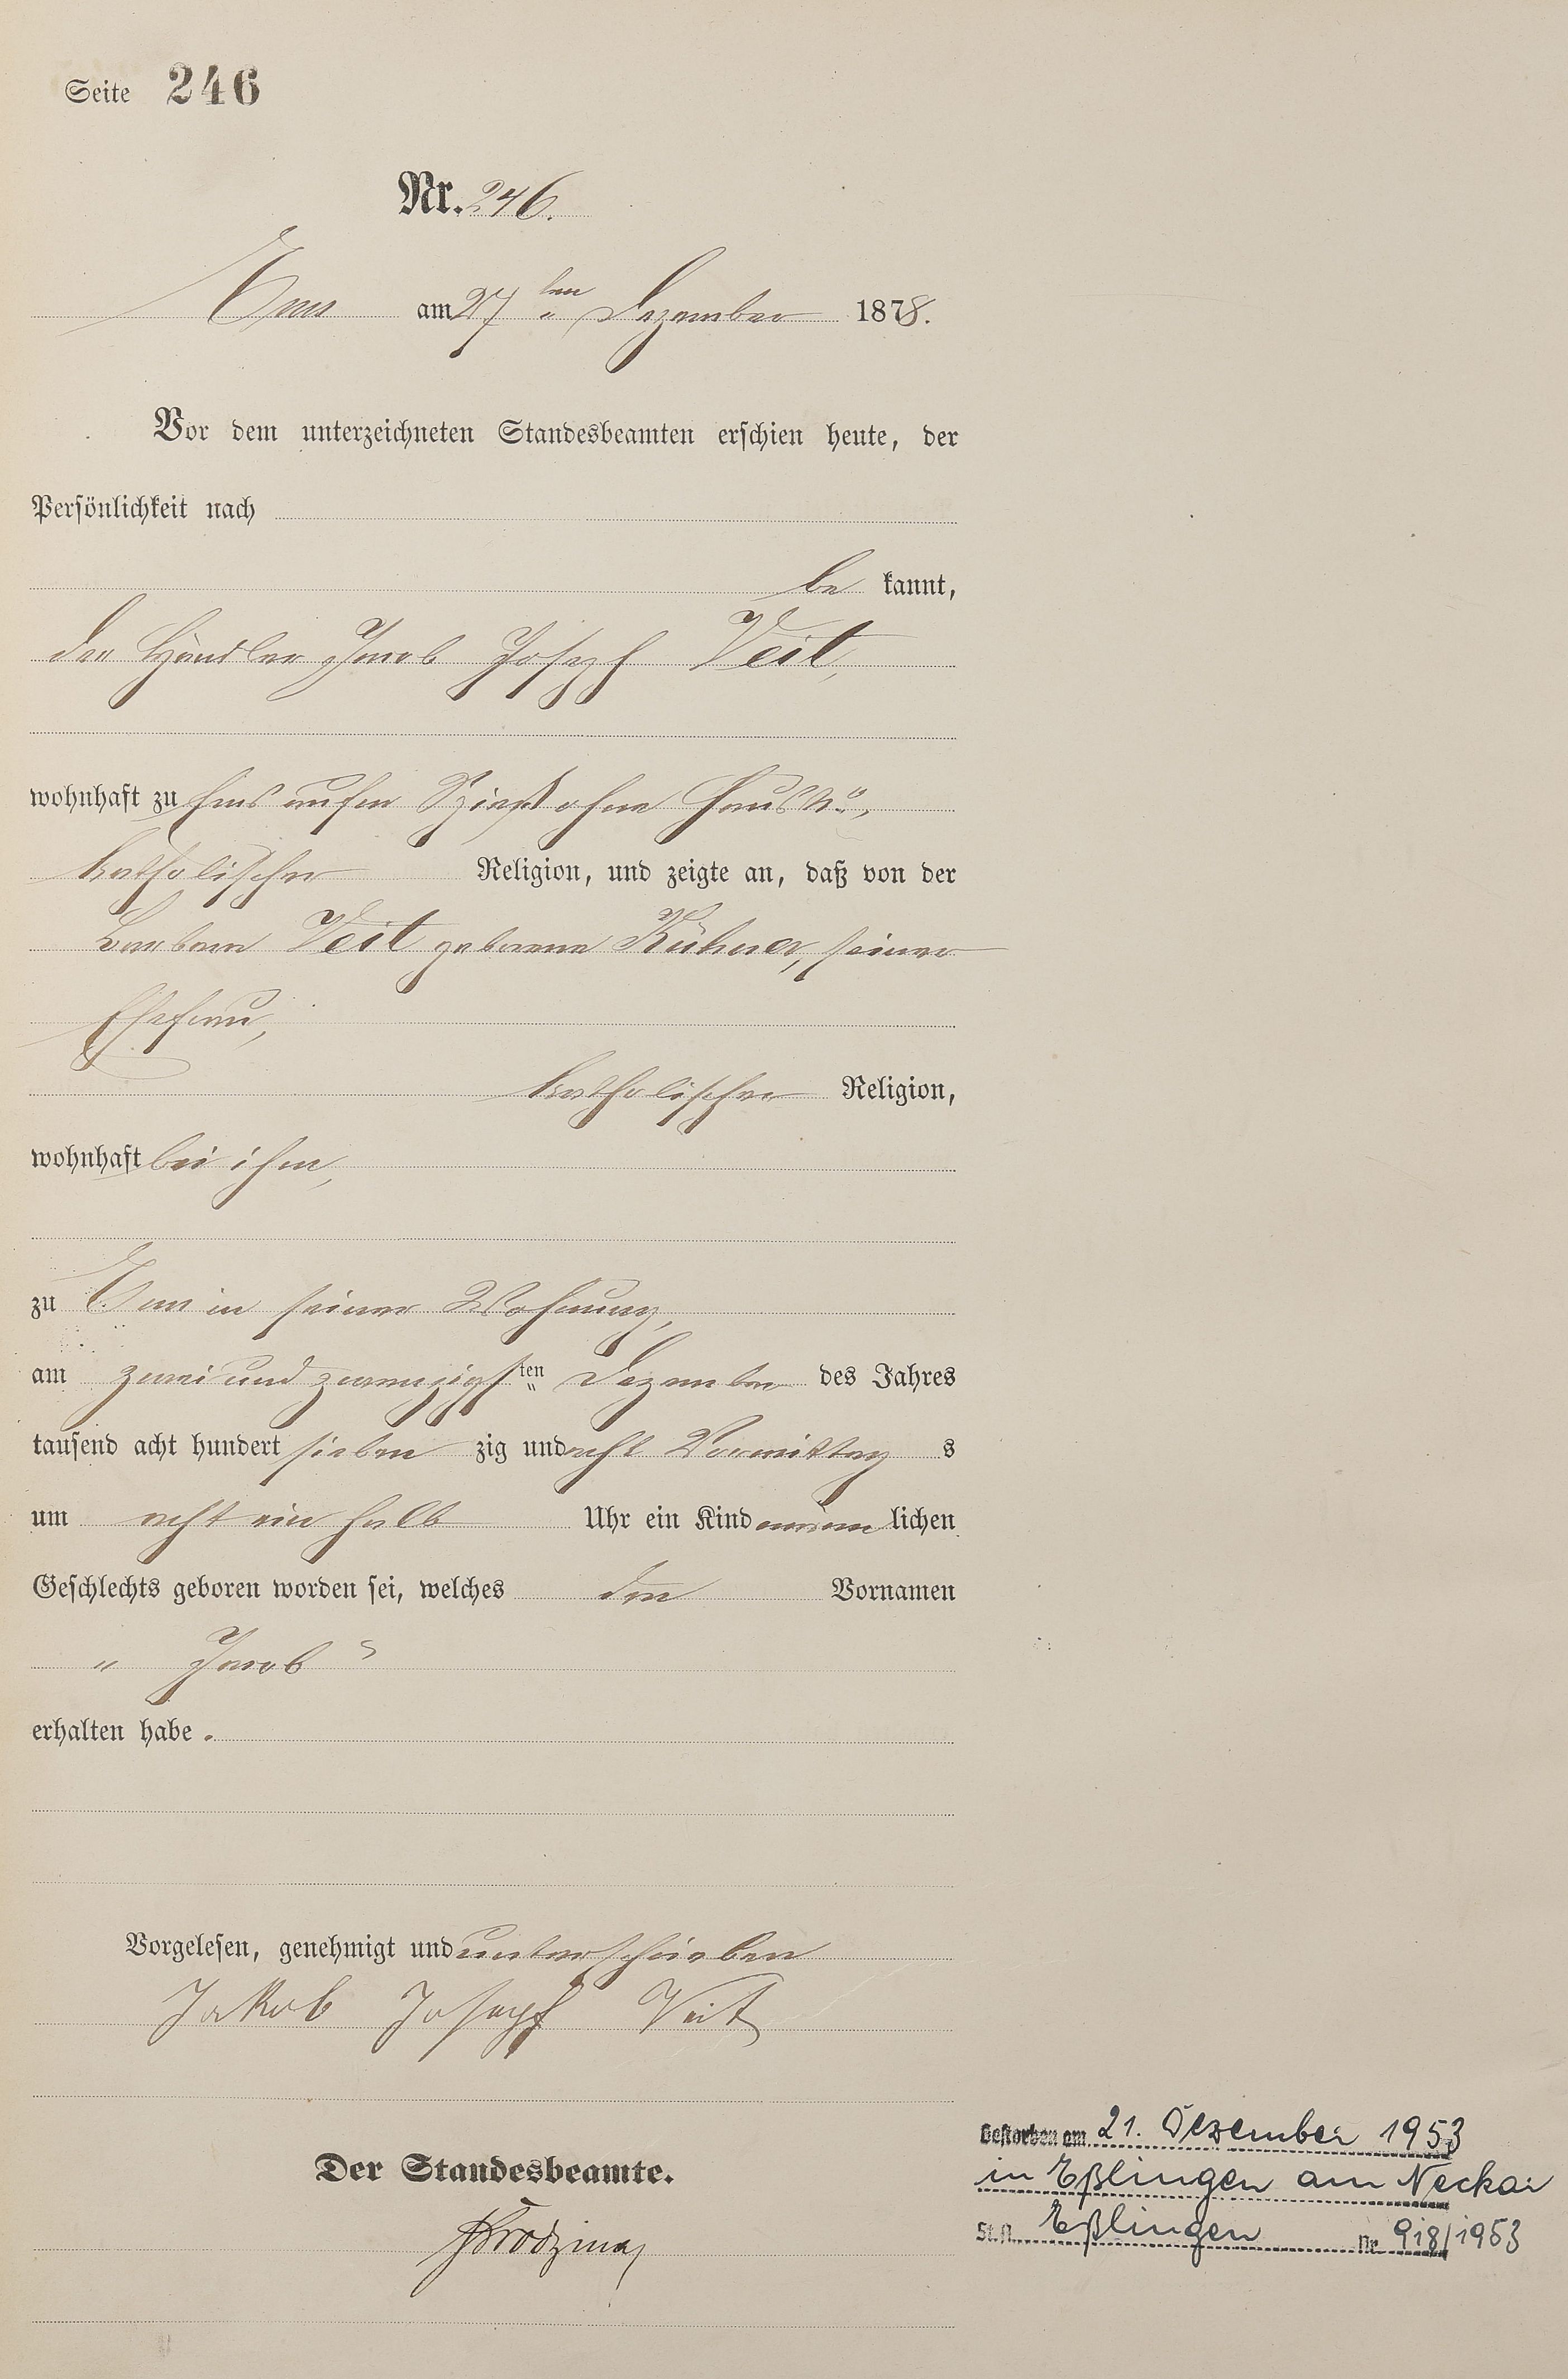 Seite 246
Nr. 246.
Ems am 27ten Dezember 1878.
Vor dem unterzeichneten Standesbeamten erschien heute, der
Persönlichkeit nach
be kannt,
der Händler Jacob Joseph Veit,
wohnhaft zu Ems auf'm Spieß ohne Haus No.,
katholischer Religion, und zeigte an, daß von der
Barbara Veit geborene Kühner, seiner
Ehefrau,
katholischer Religion,
wohnhaft bei ihm,
zu Ems in seiner Wohnung,
am zwei und zwanzigsten Dezember des Jahres
tausend acht hundert sieben zig und acht Vormittag s
um acht ein halb Uhr ein Kind männ lichen
Geschlechts geboren worden sei, welches den Vornamen
„ Jacob "
erhalten habe.
Vorgelesen, genehmigt und unterschrieben
Jakob Joseph Veit
Der Standesbeamte.
Gestorben am 21. Dezember 1953
in Eßlingen am Neckar
St.A. Eßlingen Nr. 918/1953